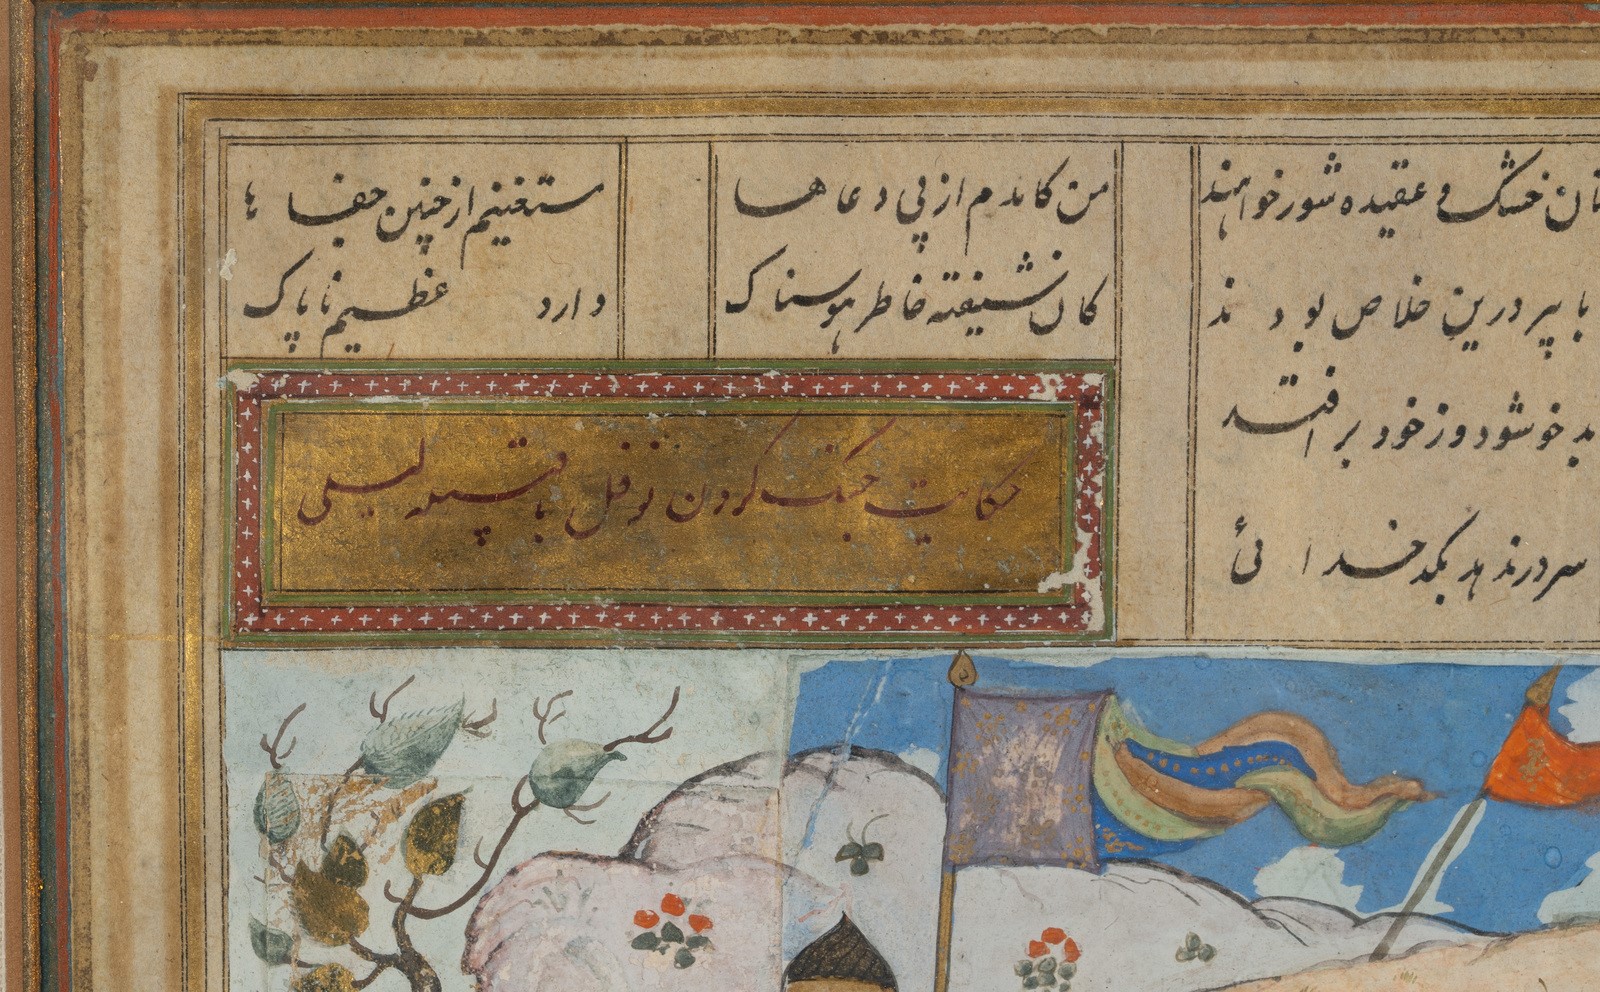 خشک و عقیده شور خواهند
من کامدم از پی دعاها
مستغنیم از چنین جفاها
با پیر درین خلاص بودند
کان شیفته خاطر هوسناک
دارد عظیم ناپاک
خوشود وز خود بر افتد
سر در ندهد بکدخدائی
حکایت جنگ کردن نوفل با قبیله لیلی